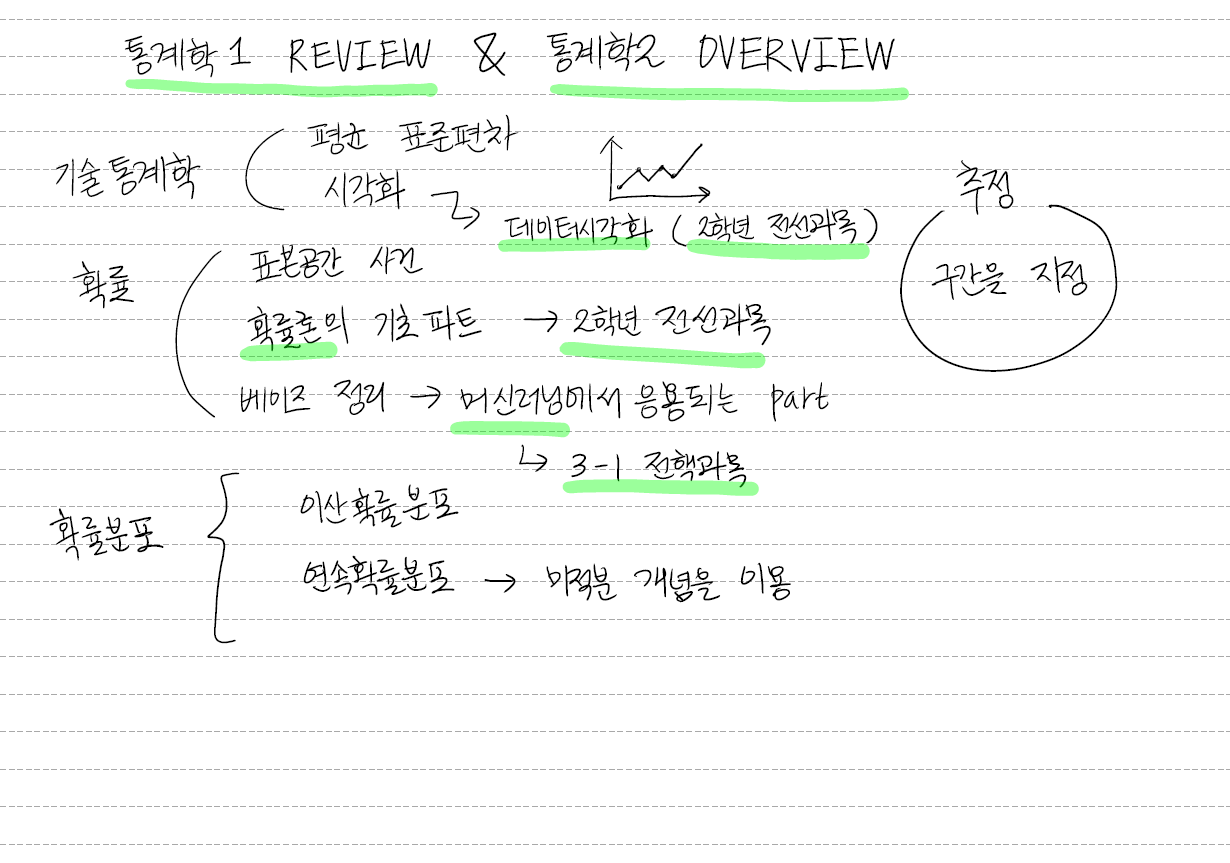 통계학1 REVIEW & 통계학2 OVERVIEW
기술통계학
평균 표준편차
시각화
데이터시각화 (2학년 전선과목)
확률
표본공간 사건
확률론의 기초파트 → 2학년 전선과목
베이즈 정리 → 머신러닝에서 응용되는 part
↳ 3-1 전핵과목
확률분포
이산확률분포
연속확률분포 → 미적분 개념을 이용
추정
구간을 지정